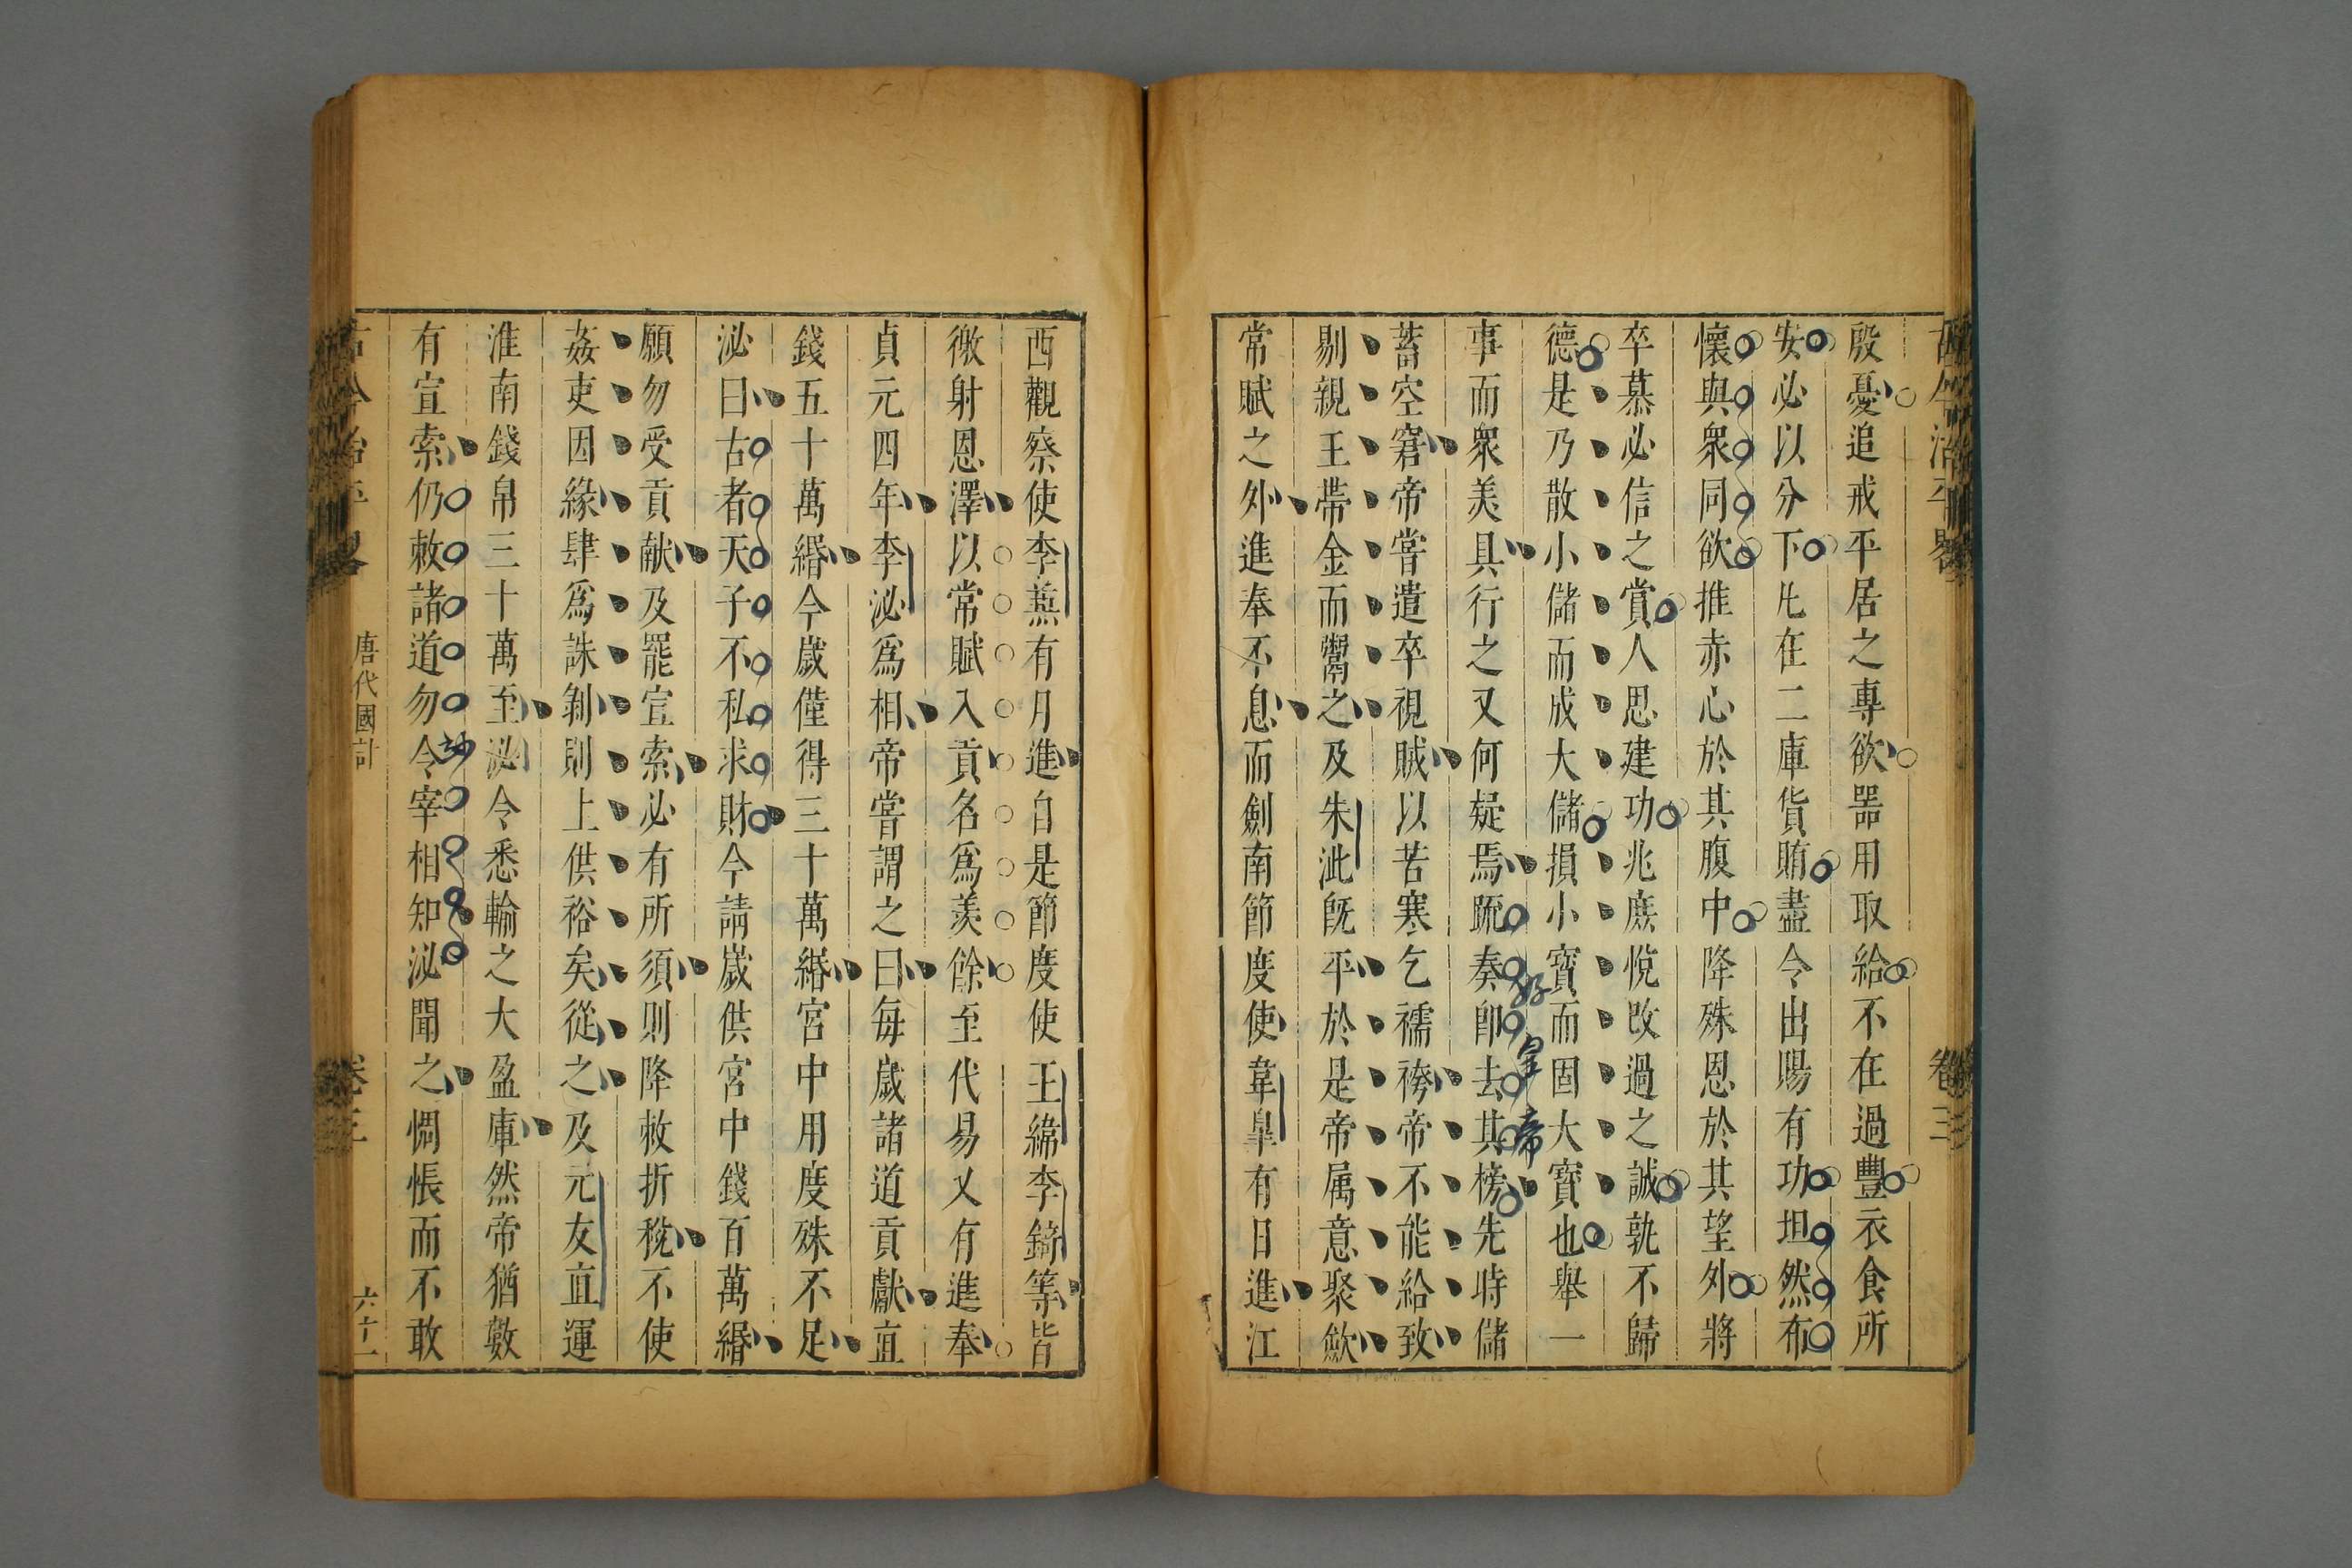 古今治平畧 卷三
殷憂追戒平居之專欲器用取給不在過豐衣食所
安必以分下凡在二庫貨賄盡令出賜有功坦然布
懷與衆同欲推赤心於其腹中降殊恩於其望外將
卒慕必信之賞人思建功兆庶悅改過之誠孰不歸
德是乃散小儲而成大儲損小寶而固大寶也舉一
好皇帝
事而衆美具行之又何疑焉疏奏卽去其榜先時儲
蓄空窘帝嘗遣卒視賊以苦寒乞襦袴帝不能給致
剔親王帶金而鬻之及朱泚旣平於是帝属意聚歛
常賦之外進奉不息而劍南節度使韋臯有日進江
西觀察使李蒹有月進自是節度使王緯李錡等皆
徼射恩澤以常賦入貢名爲羨餘至代易又有進奉
貞元四年李泌爲相帝嘗謂之曰每歲諸道貢獻直
錢五十萬緡今歲僅得三十萬緡宮中用度殊不足
泌曰古者天子不私求財今請歲供宮中錢百萬緡
願勿受貢献及罷宣索必有所須則降敕折稅不使
姦吏因緣肆爲誅剝則上供裕矣從之及元友直運
淮南錢帛三十萬至泌令悉輸之大盈庫然帝猶數
有宣索仍敕諸道勿令宰相知泌聞之惆悵而不敢
妙
古今治平畧 唐代國計 卷三 六十一